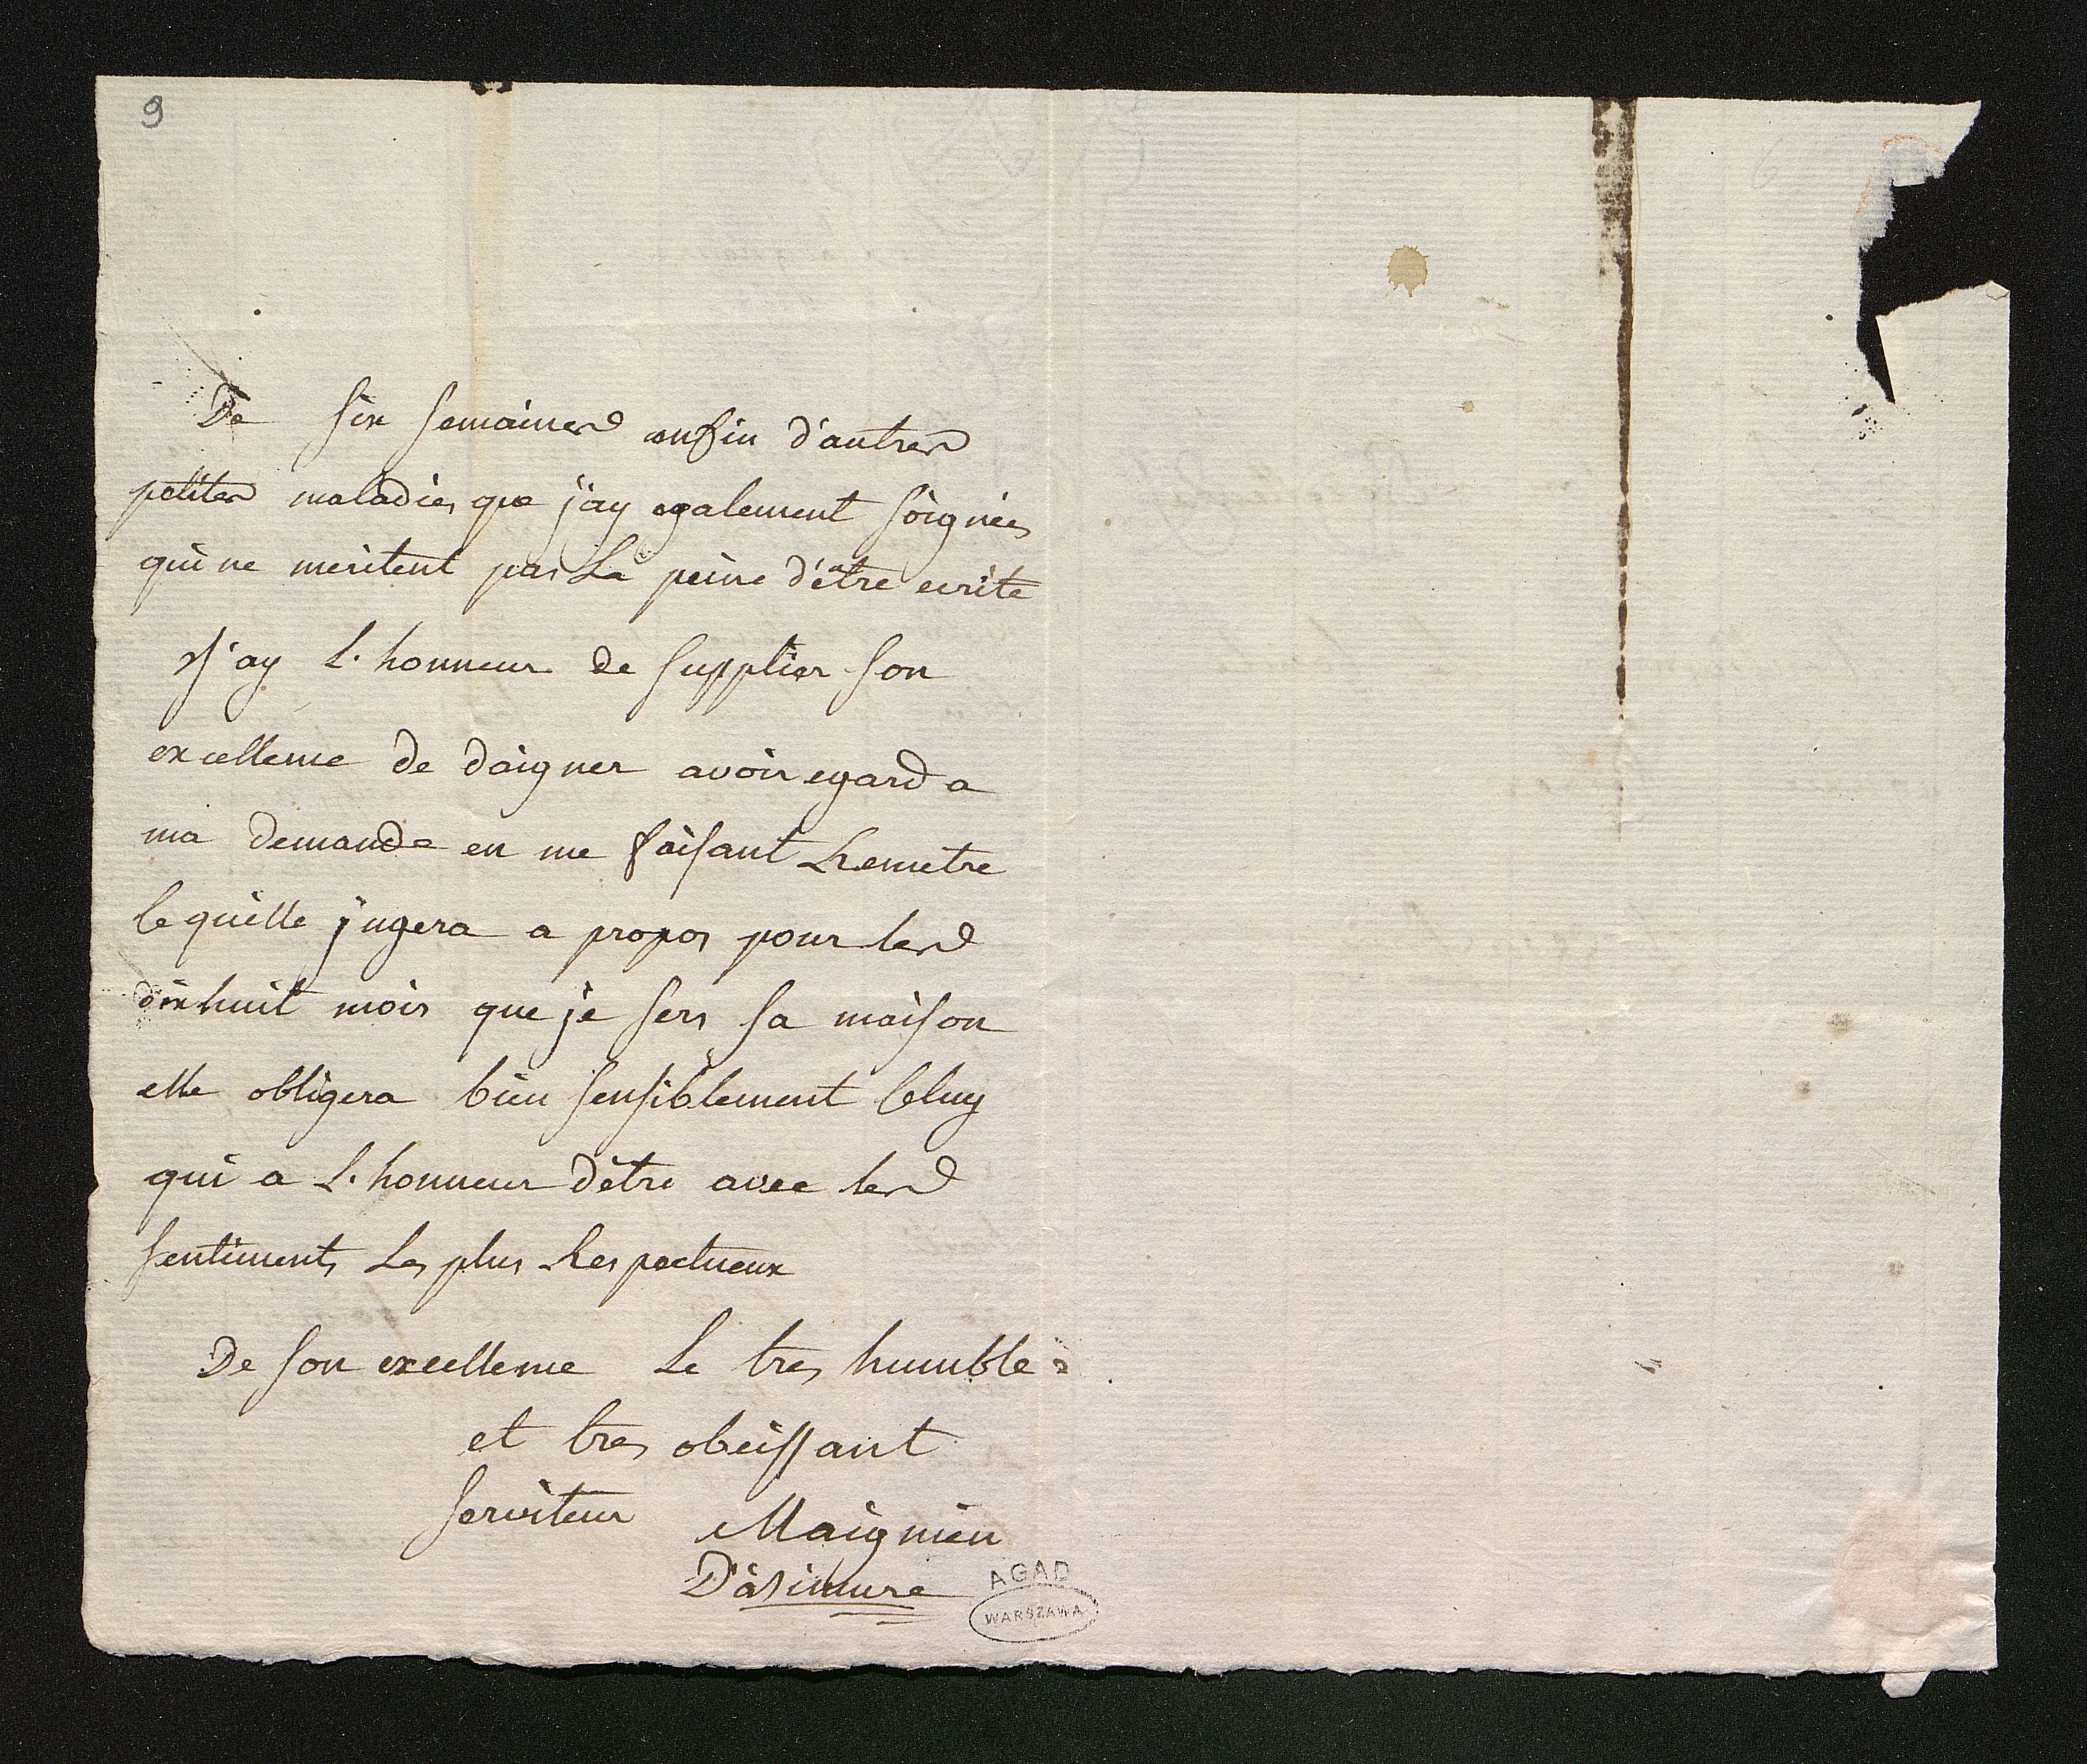 9
De six semaines enfin d'autres
petites maladies que j'ay egalement soignées
qui ne meritent pas La peine d'être ecrite
J'ay L'honneur de supplier son
excellence de daigner avoir egard a
ma demande en me faisant Remetre
le quelle jugera a propos pour les
dix huit mois que je sers sa maison
elle obligera bien sensiblement Celuy
qui a L'honneur d'être avec les
sentiments Les plus Respectueux
De son excellence Le tres humble
et tres obeissant
serviteur Maignien
AGAD
WARSZAWA